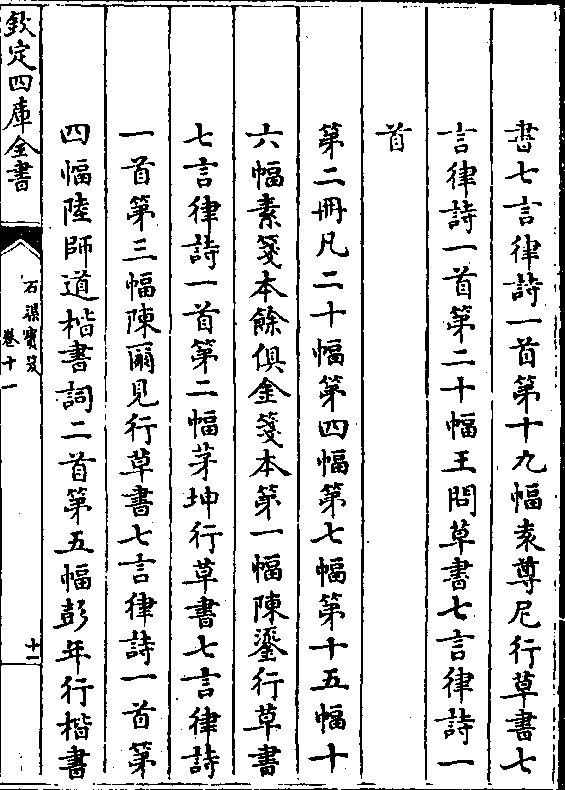 書七言律詩一首第十九幅袁尊尼行草書七
言律詩一首第二十幅王問草書七言律詩一
首
第二冊凡二十幅第四幅第七幅第十五幅十
六幅素箋本餘俱金箋本第一幅陳鎏行草書
七言律詩一首第二幅茅坤行草書七言律詩
一首第三幅陳爾見行草書七言律詩一首第
四幅陸師道楷書詞二首第五幅彭年行楷書
欽定四庫全書
石渠寶笈
卷十一
十二